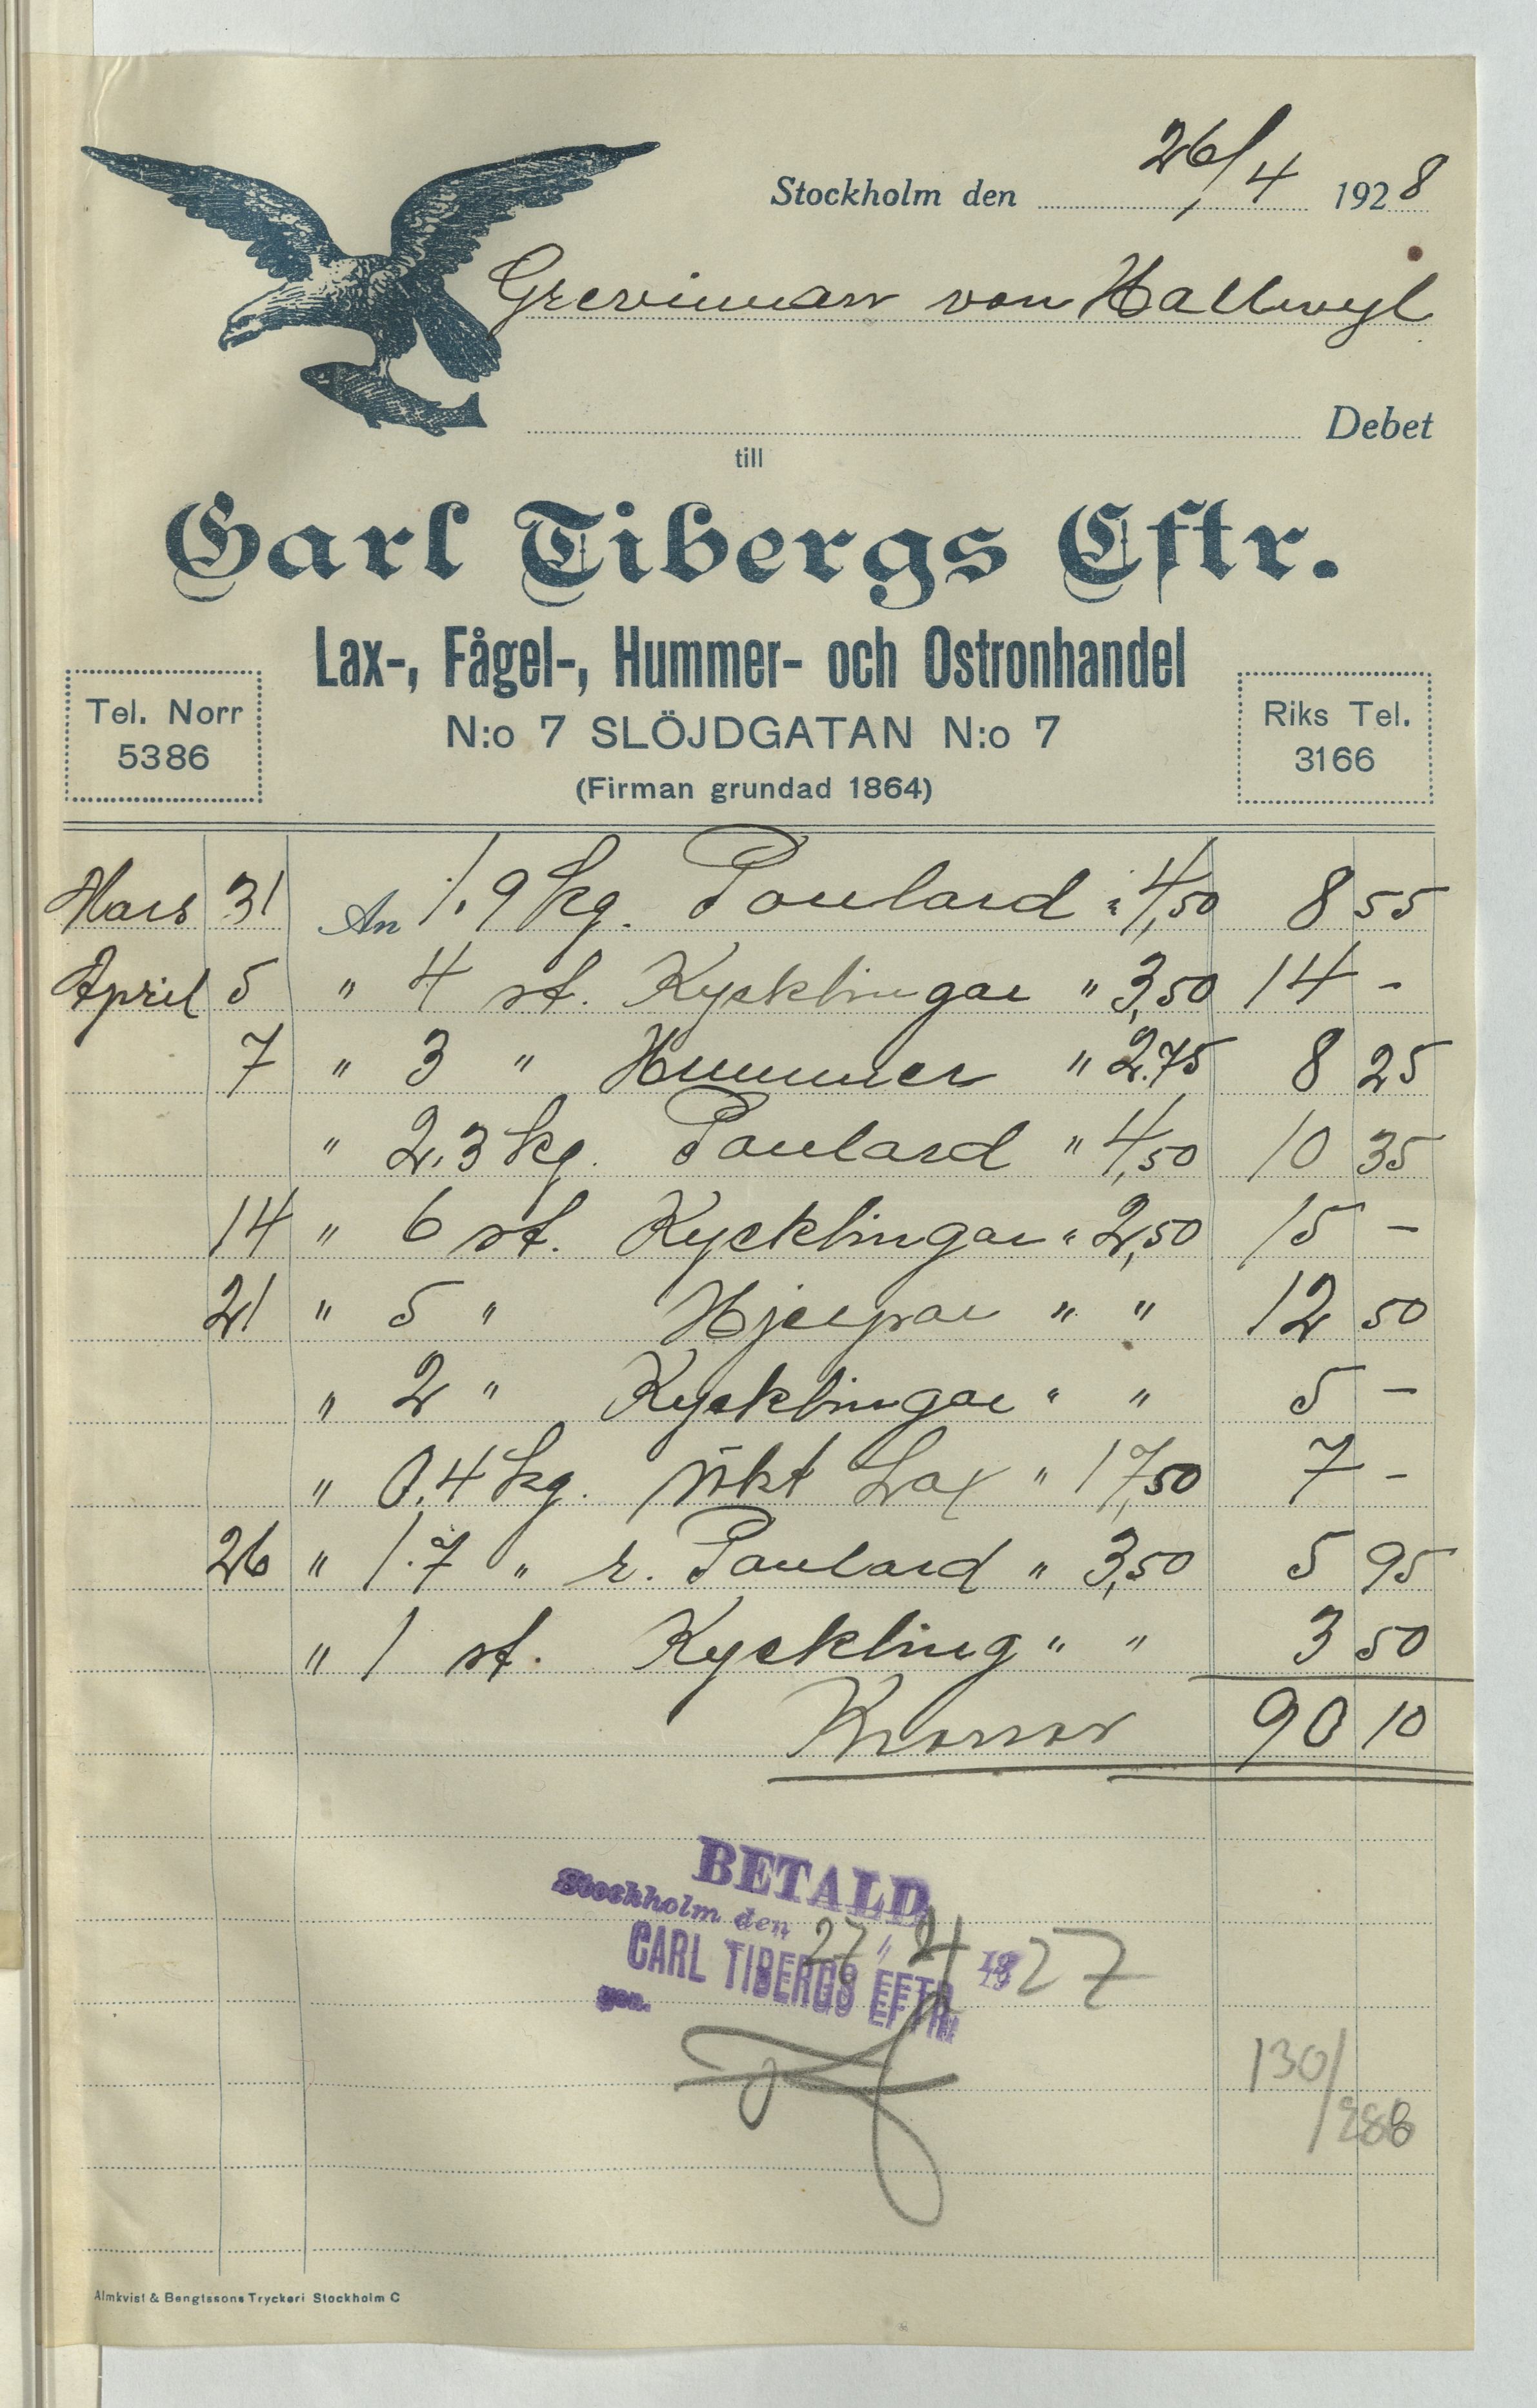 Stockholm den 26/4 1928
Grevinnan von Hallwyl
Debet
till
Carl Tibergs Eftr.
Lax-, Fågel-, Hummer- och Ostronhandel
Tel. Norr
5386
N:o 7 SLÖJDGATAN N:o 7
(Firman grundad 1864)
Riks Tel.
3166
Mars 31 An 1.9 kg. Poulard " 4,50 8 55
April 5 " 4 st. Kycklingar " 3,50 14 -
7 " 3 " Hummer " 2.75 8 25
" 2,3 kg. Poulard " 4,50 10 35
14 " 6 st. Kycklingar " 2,50 15 -
21 " 5 " Hjerpar " " 12 50
" 2 " Kycklingar " " 5 -
" 0,4 kg. rökt Lax " 17,50 7 -
26 " 1.7 " r. Poulard " 3,50 5 95
" 1 st. Kyckling " " 3 50
Kronor 90 10
BETALD
Stockholm den 27/4 1927
CARL TIBERGS EFTR.
gen.
130/288
Almkvist & Bengtssons Tryckeri Stockholm C